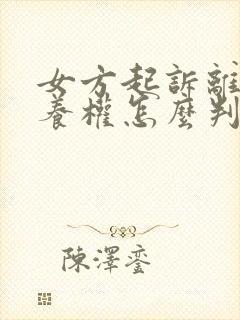 女方起訴離
養權怎麼判
陳澤鑾